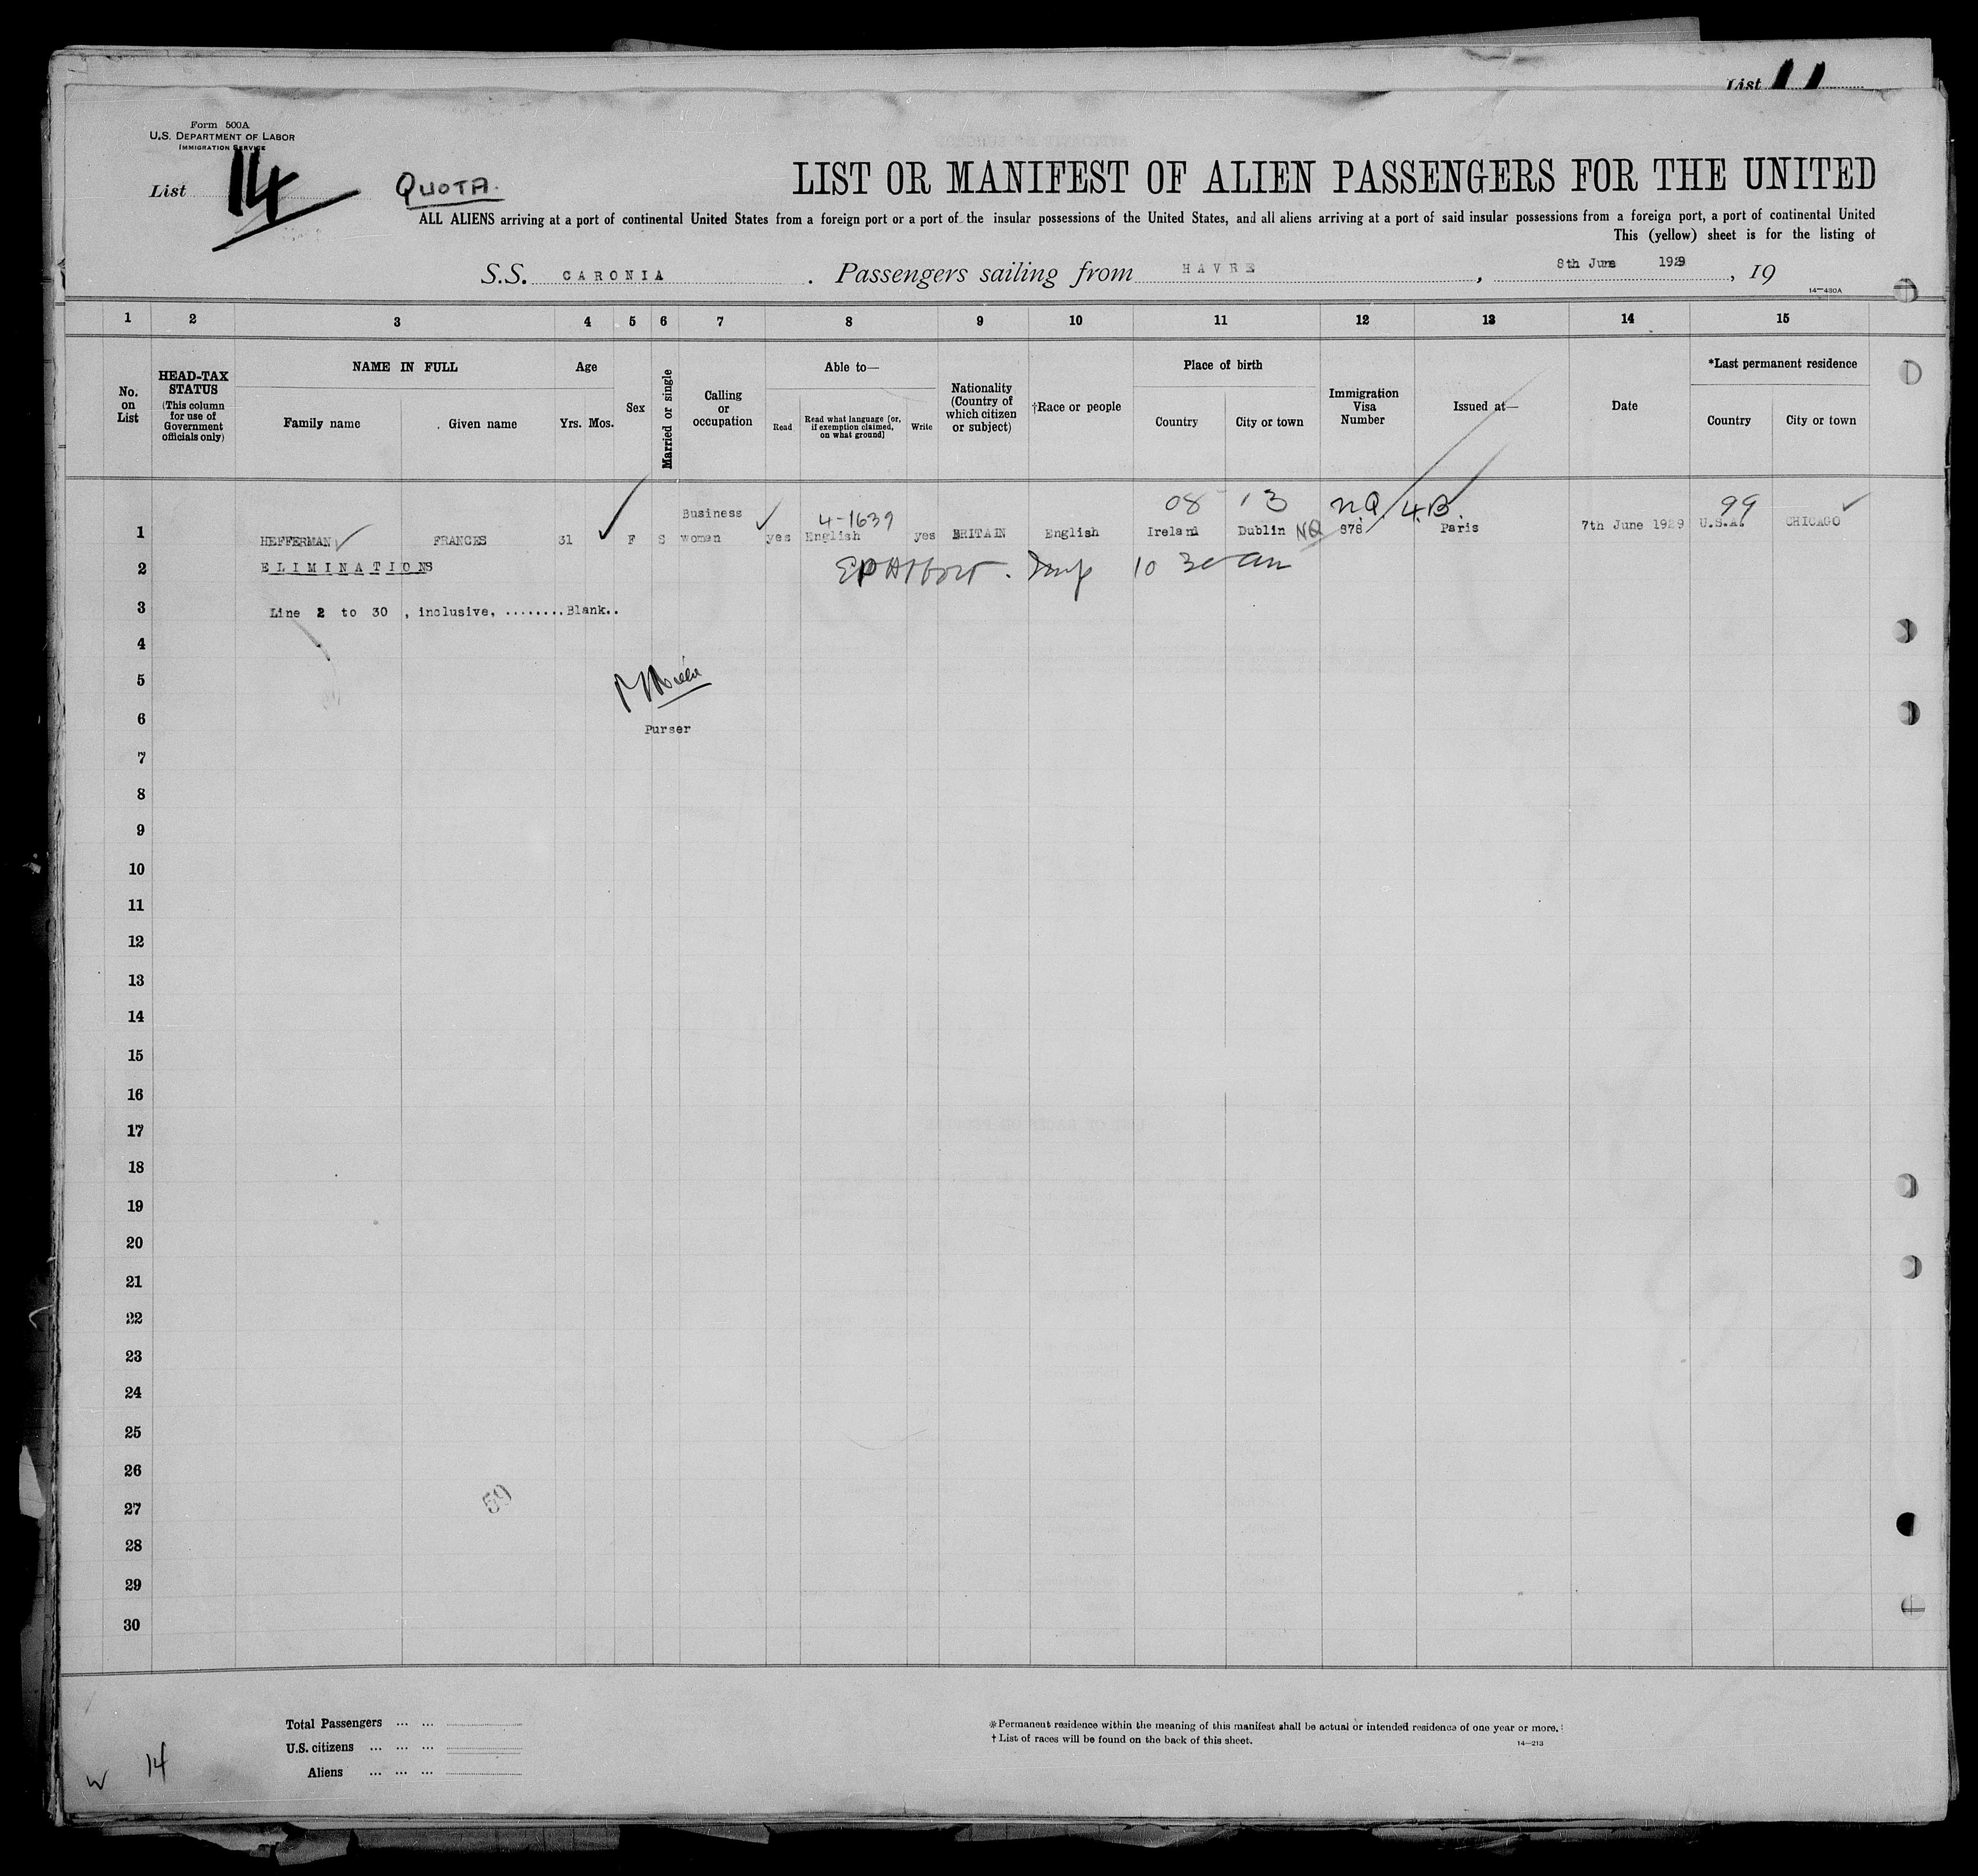 List 11
Form 500A
U.S. DEPARTMENT OF LABOR
IMMIGRATION SERVICE
List 14
QUOTA.
LIST OR MANIFEST OF ALIEN PASSENGERS FOR THE UNITED
ALL ALIENS arriving at a port of continental United States from a foreign port or a port of the insular possessions of the United States, and all aliens arriving at a port of said insular possessions from a foreign port, a port of continental United
This (yellow) sheet is for the listing of
S.S. CARONIA. Passengers sailing from HAVRE, 8th June 1929, 19
14—430A
1 2 3 4 5 6 7 8 9 10 11 12 13 14 15
No. on List
HEAD-TAX STATUS
(This column for use of Government officials only)
NAME IN FULL
Family name Given name
Age
Yrs. Mos.
Sex
Married or single
Calling or occupation
Able to—
Read
Read what language [or, if exemption claimed, on what ground]
Write
Nationality (Country of which citizen or subject)
†Race or people
Place of birth
Country City or town
Immigration Visa Number
Issued at—
Date
*Last permanent residence
Country City or town
08 13 N.Q. 4.B. 99
Business 4-1639
1 HEFFERMAN FRANCES 31 F S woman yes English yes BRITAIN English Ireland Dublin NQ 878 Paris 7th June 1929 U.S.A. CHICAGO
2 ELIMINATIONS
10 30 am
3 Line 2 to 30 , inclusive, ........Blank..
4
5
6 Purser
7
8
9
10
11
12
13
14
15
16
17
18
19
20
21
22
23
24
25
26
27 59
28
29
30
Total Passengers ... ...
U.S. citizens ... ... ...
Aliens ... ... ...
*Permanent residence within the meaning of this manifest shall be actual or intended residence of one year or more.
† List of races will be found on the back of this sheet.
14—213
W 14